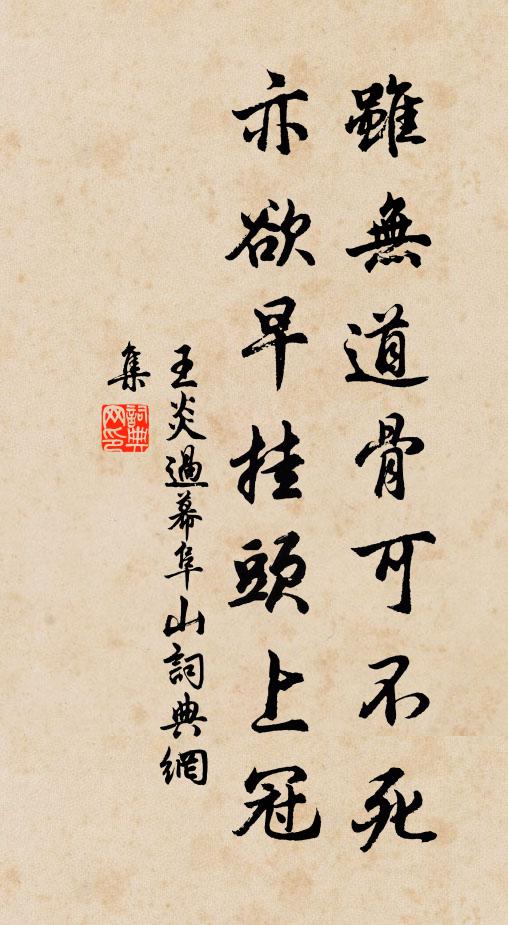 雖無道骨可不死
亦欲早挂頭上冠
王炎過幕阜山詞典網
集
詞典网印